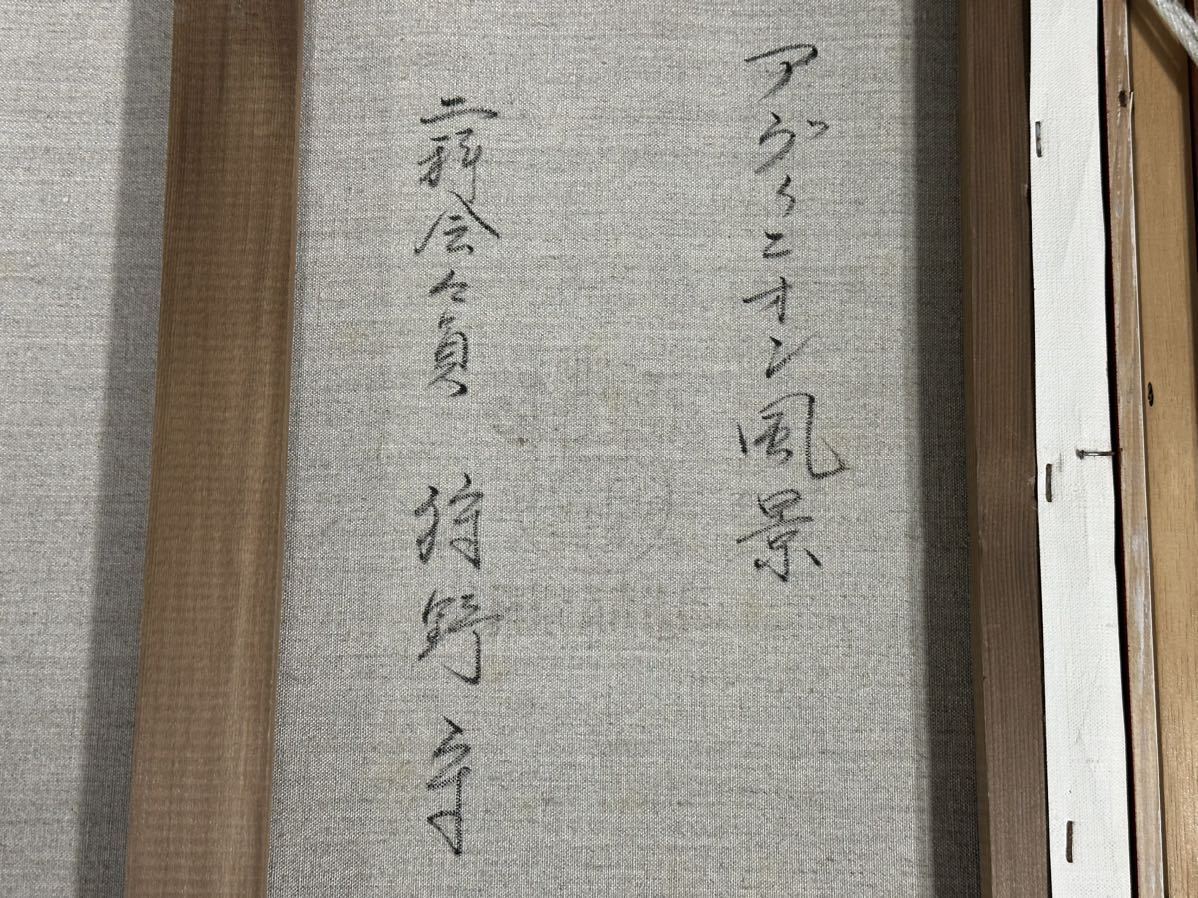 アヴィニオン風景
二科会々員 狩野守